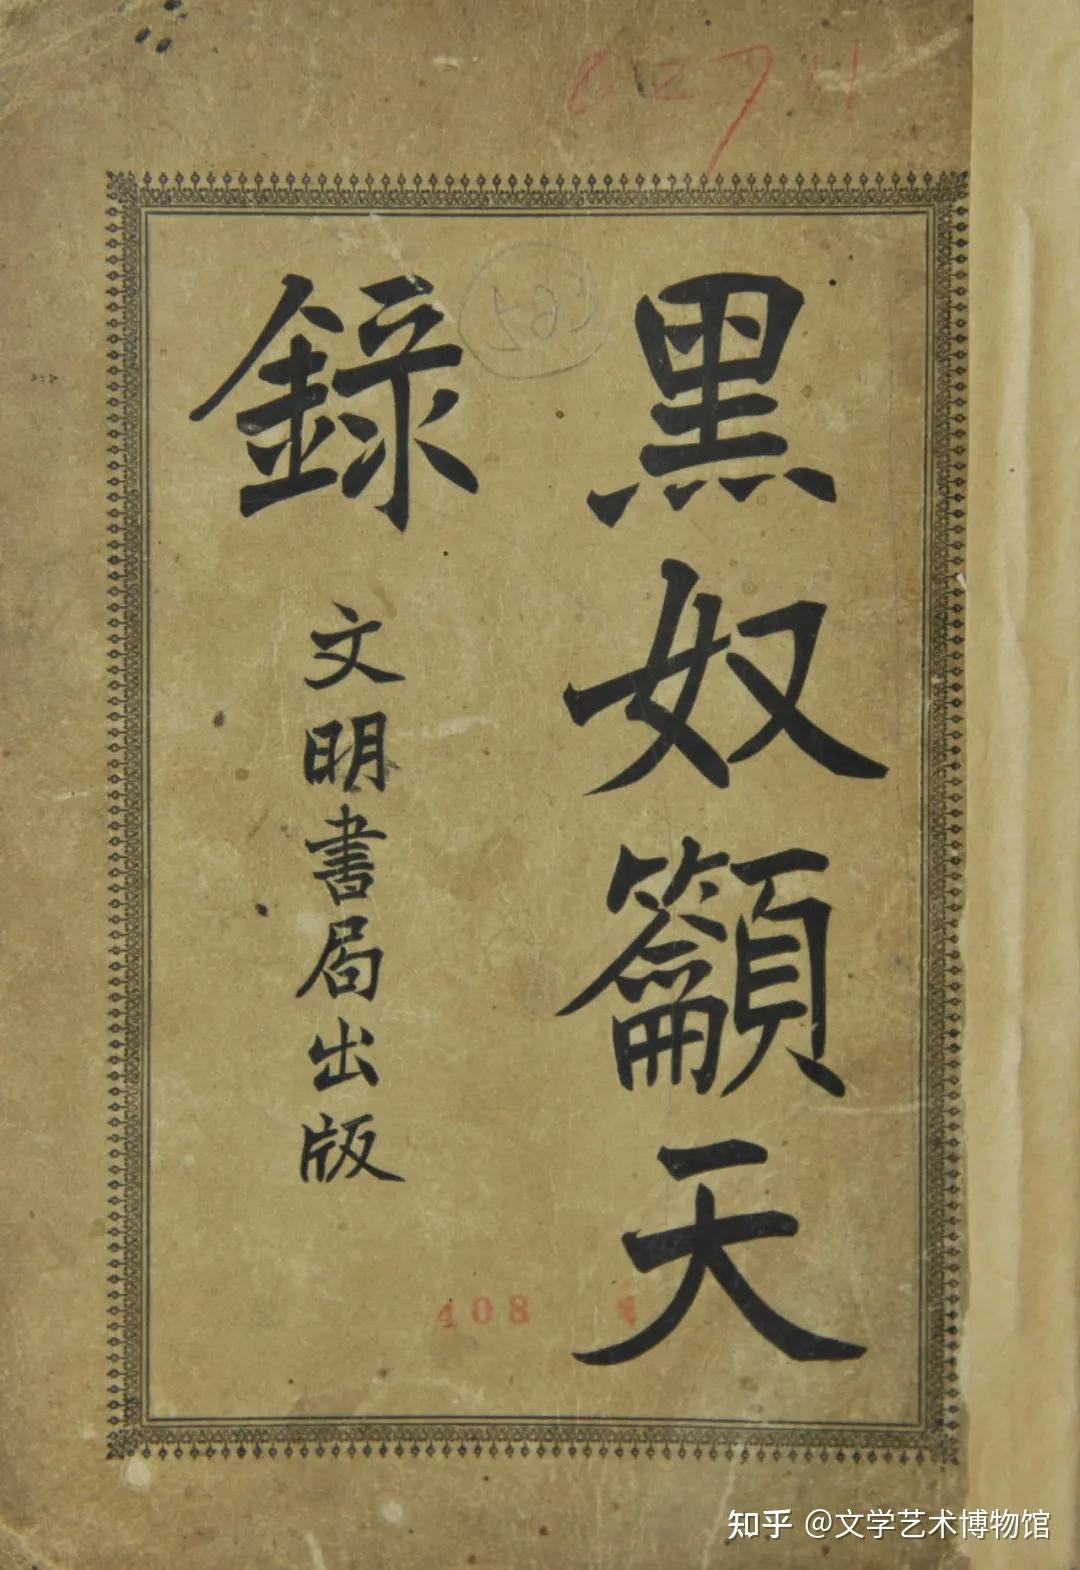 黑奴籲天
錄
文明書局出版
408
知乎 @文学艺术博物馆